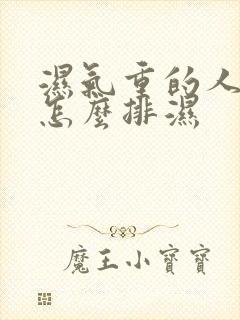 濕氣重的人
怎麼排濕
魔王小寶寶